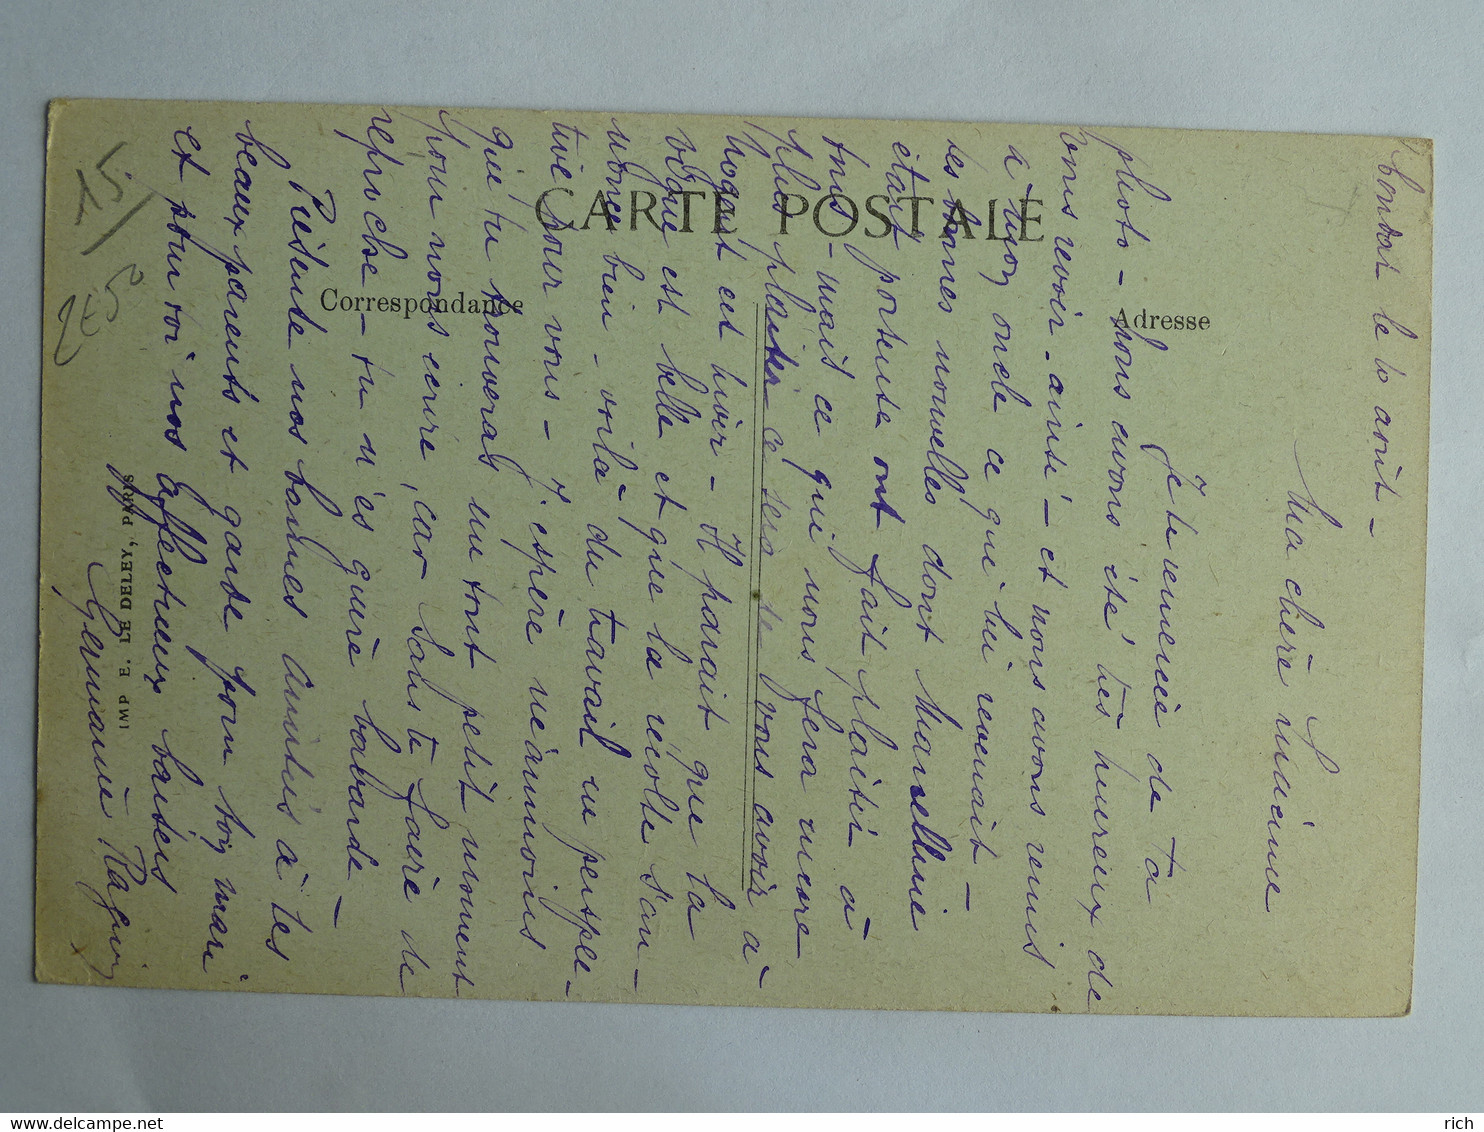 CARTE POSTALE
Correspondance
Adresse
le 10 août -
Ma chère
Je te remercie de ta
photo - nous avons été très heureux de
vous revoir - ainsi - et nous avons remis
à mon oncle ce qui lui revenait -
tes bonnes nouvelles dont Marcelline
était porteuse ont fait plaisir à
tous - mais ce qui nous fera encore
plus plaisir - ce sera de vous avoir à
cet hiver - Il parait que la
est belle et que la récolte s'an-
nonce bien - voilà du travail en perspec-
tive pour vous - J'espère néanmoins
que tu trouveras un tout petit moment
pour nous écrire, car sans te faire de
reproche - tu n'es guère bavarde -
Présente nos bonnes amitiés à tes
beaux parents et garde pour ton mari
et pour toi nos affectueux baisers
Germaine
IMP E. LE DELEY, PARIS
15
2E50
rich
delcampe.net